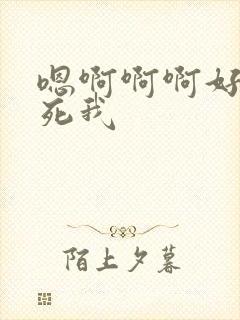 嗯啊啊啊好
死我
陌上夕暮